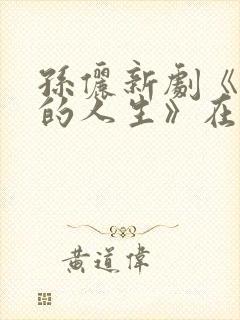 孫儷新劇《
的人生》在
黄道偉